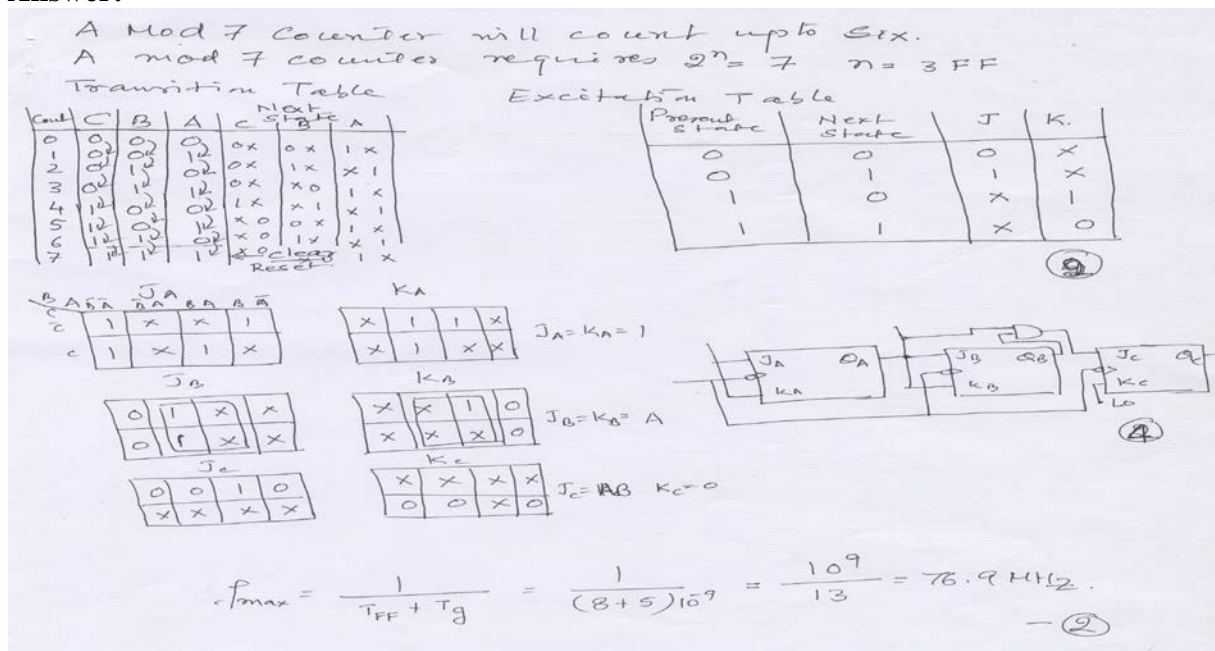 A Mod 7 Counter will count upto Six.
A mod 7 counter requires 2ⁿ= 7 n= 3 FF
Transition Table
Excitation Table
Count C B A Next State C B A
0 0 0 0 0x 0x 1x
1 0 0 1 0x 1x x1
2 0 1 0 0x x0 1x
3 0 1 1 1x x1 x1
4 1 0 0 x0 0x 1x
5 1 0 1 x0 1x x1
6 1 1 0
7 1 1 1 clear 1x
Reset
Present State Next State J K.
0 0 0 x
0 1 1 x
1 0 x 1
1 1 x 0
9
JA
1 x x 1
1 x 1 x
KA
x 1 1 x
x 1 x x
JA = KA = 1
JB
0 1 x x
0 1 x x
KB
x x 1 0
x x x 0
JB = KB = A
Jc
0 0 1 0
x x x x
Kc
x x x x
0 0 x 0
Jc = AB Kc = 0
JA QA JB QB Jc Qc
KA KB Kc
4
fmax = 1 / (TFF + Tg) = 1 / (8+5)10⁻⁹ = 10⁹ / 13 = 76.9 MHz.
- 2